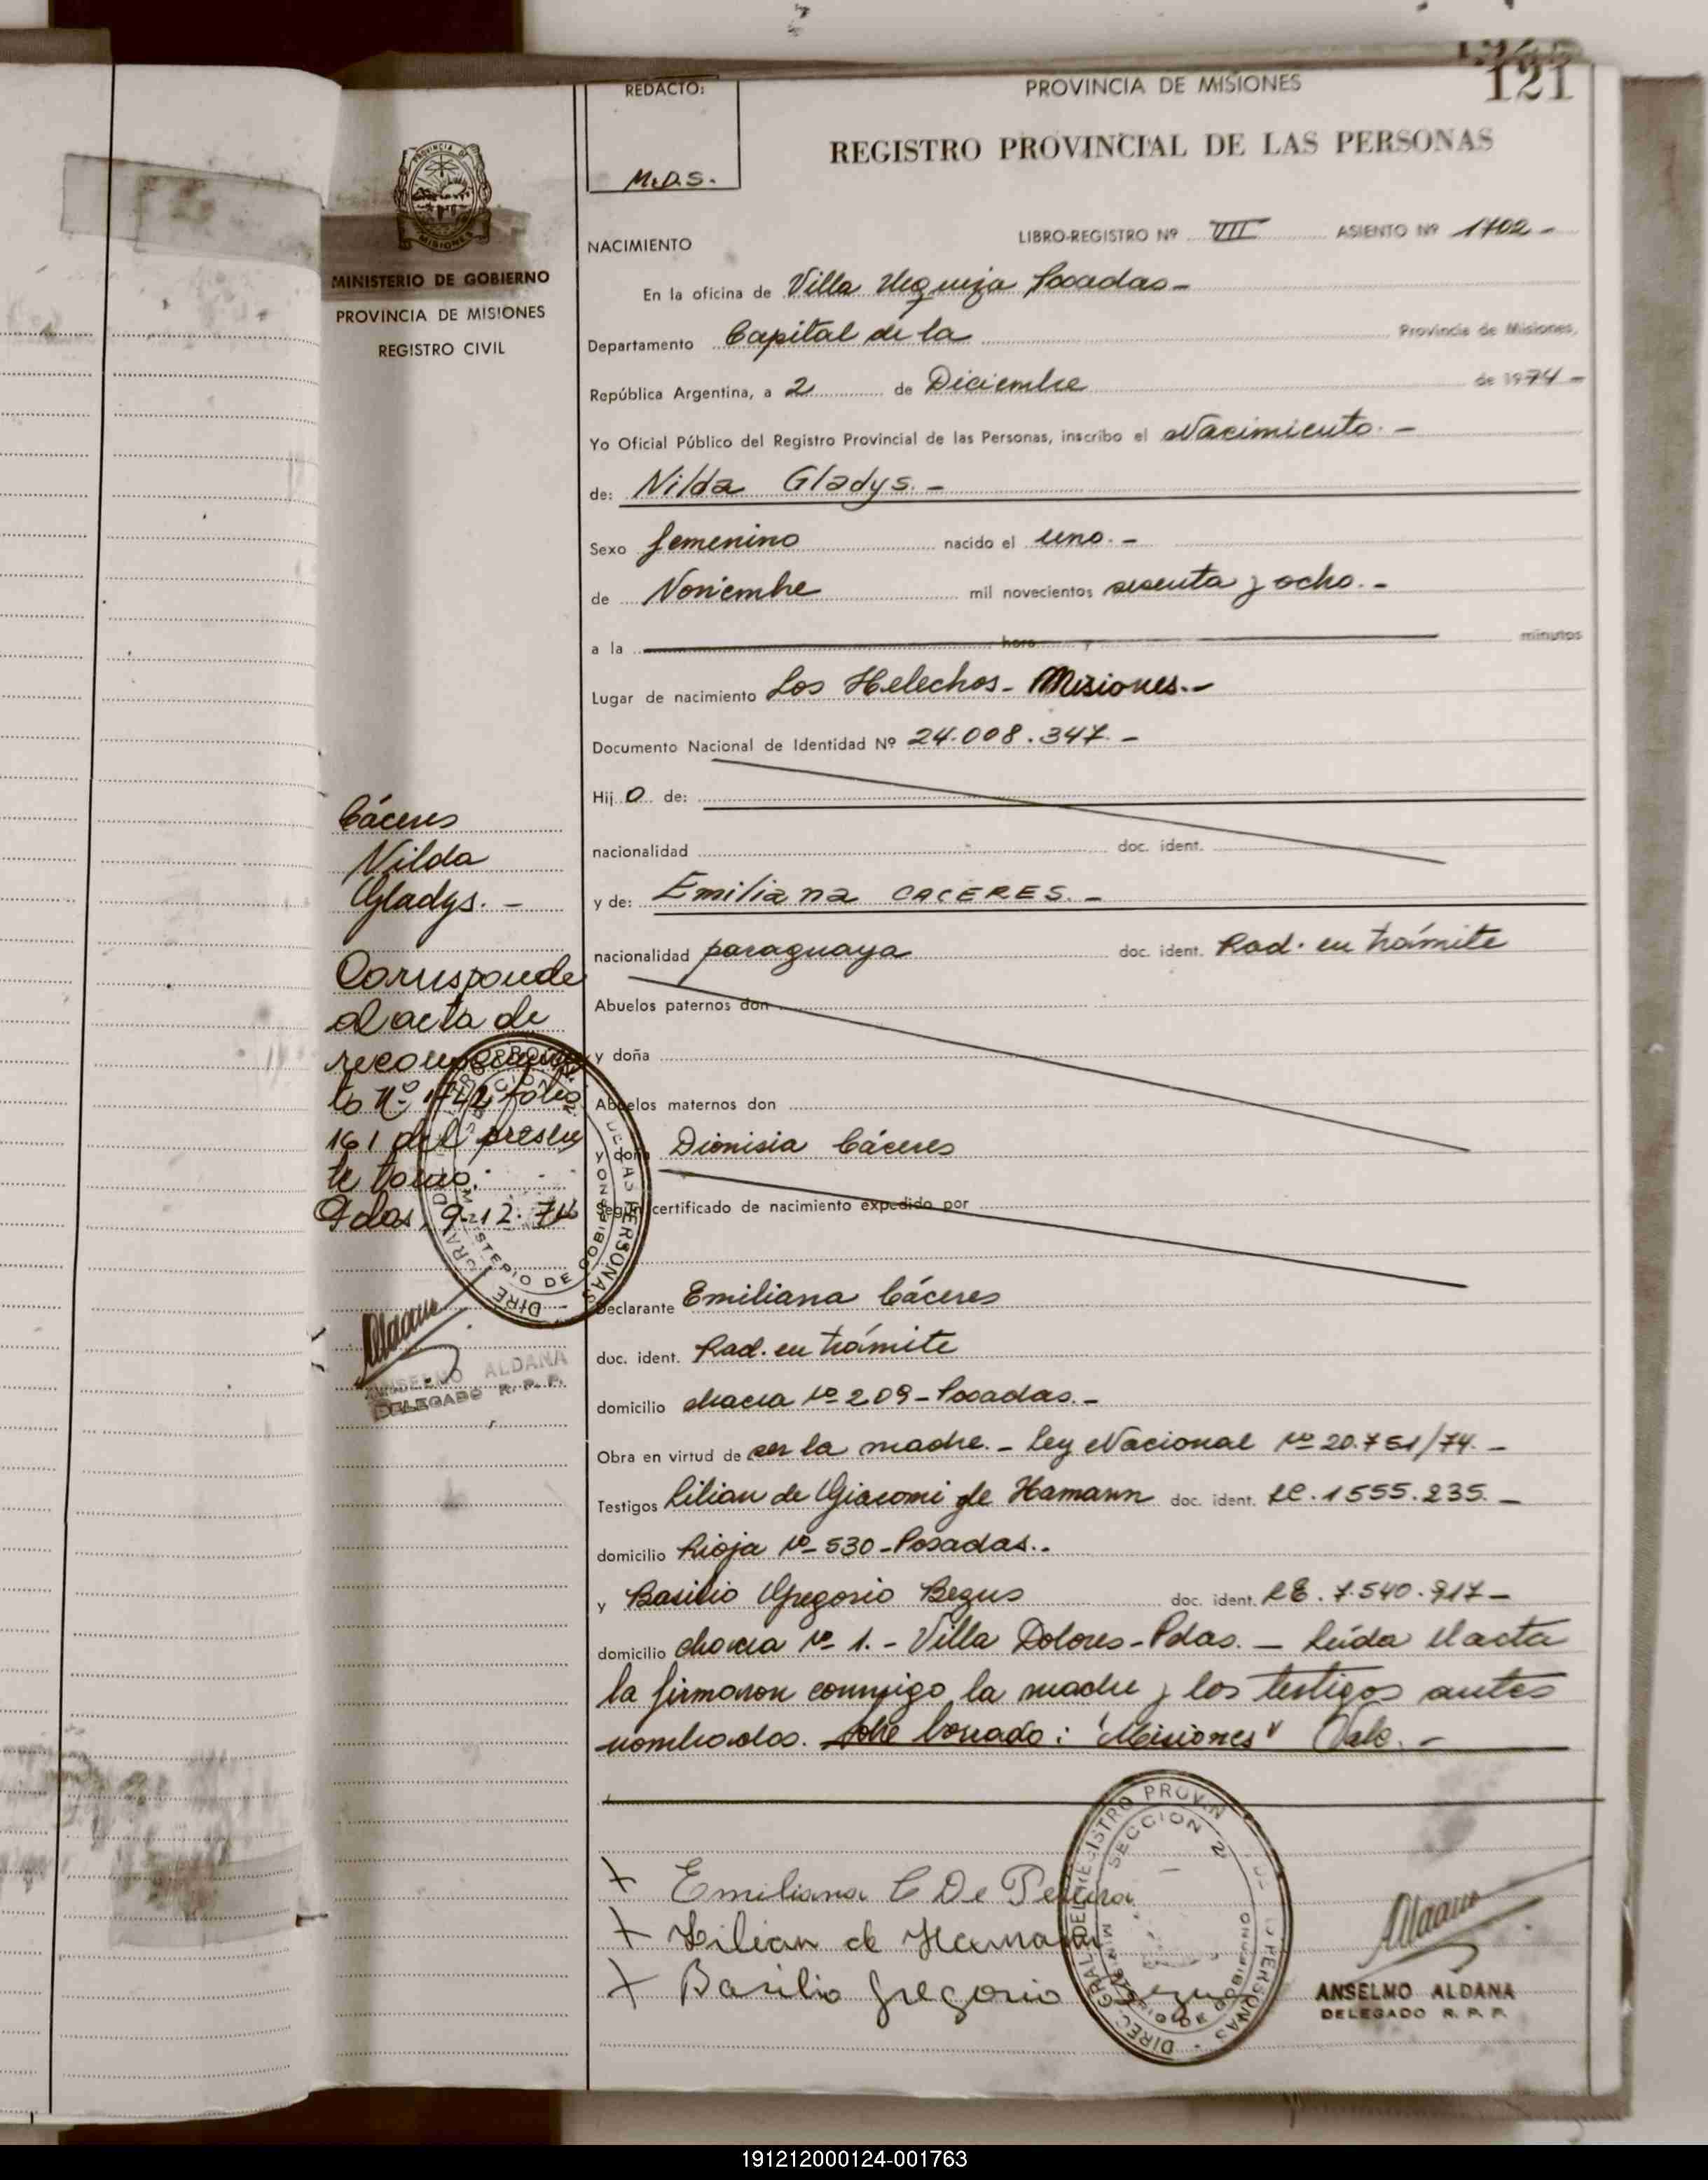 121
REDACTO:
M.D.S.
PROVINCIA DE MISIONES
REGISTRO PROVINCIAL DE LAS PERSONAS
PROVINCIA DE
MISIONES
MINISTERIO DE GOBIERNO
PROVINCIA DE MISIONES
REGISTRO CIVIL
NACIMIENTO
LIBRO-REGISTRO Nº VIII ASIENTO Nº 1702 -
En la oficina de Villa Urquiza Posadas -
Departamento Capital de la Provincia de Misiones,
República Argentina, a 2 de Diciembre de 1974 -
Yo Oficial Público del Registro Provincial de las Personas, inscribo el Nacimiento. -
de: Nilda Gladys. -
Sexo femenino nacido el uno. -
de Noviembre mil novecientos sesenta y ocho. -
a la hora y minutos
Lugar de nacimiento Los Helechos - Misiones. -
Documento Nacional de Identidad Nº 24.008.347. -
Hij o de:
nacionalidad doc. ident.
y de: Emiliana CACERES. -
nacionalidad paraguaya doc. ident. Rad. en trámite
Abuelos paternos don
y doña
Abuelos maternos don
y doña Dionisia Cáceres
Según certificado de nacimiento expedido por
Declarante Emiliana Cáceres
doc. ident. Rad. en trámite
domicilio chacra Nº 209 - Posadas. -
Obra en virtud de ser la madre. - Ley Nacional Nº 20.751/74. -
Testigos Lilian de Giacomi de Hamann doc. ident. LC. 1555.235. -
domicilio Rioja Nº 530 - Posadas. -
y Basilio Gregorio Bezus doc. ident. LE. 7.540.917 -
domicilio chacra Nº 1. - Villa Dolores - Pdas. - Leída el acta
la firmaron conmigo la madre y los testigos antes
nombrados. Sobre borrado: "Misiones" Vale. -
Cáceres
Nilda
Gladys. -
Corresponde
al acta de
reconocimien
to Nº 1742 folio
161 del presen
te tomo.
Pdas, 9-12-74
ANSELMO ALDANA
DELEGADO R. P. P.
Emiliana C De Pereira
Lilian de Hamann
Basilio Gregorio Bezus
DIREC. GRAL. DEL REGISTRO PROVIN DE LAS PERSONAS
SECCION 2
MINISTERIO DE GOBIERNO
ANSELMO ALDANA
DELEGADO R. P. P.
191212000124-001763